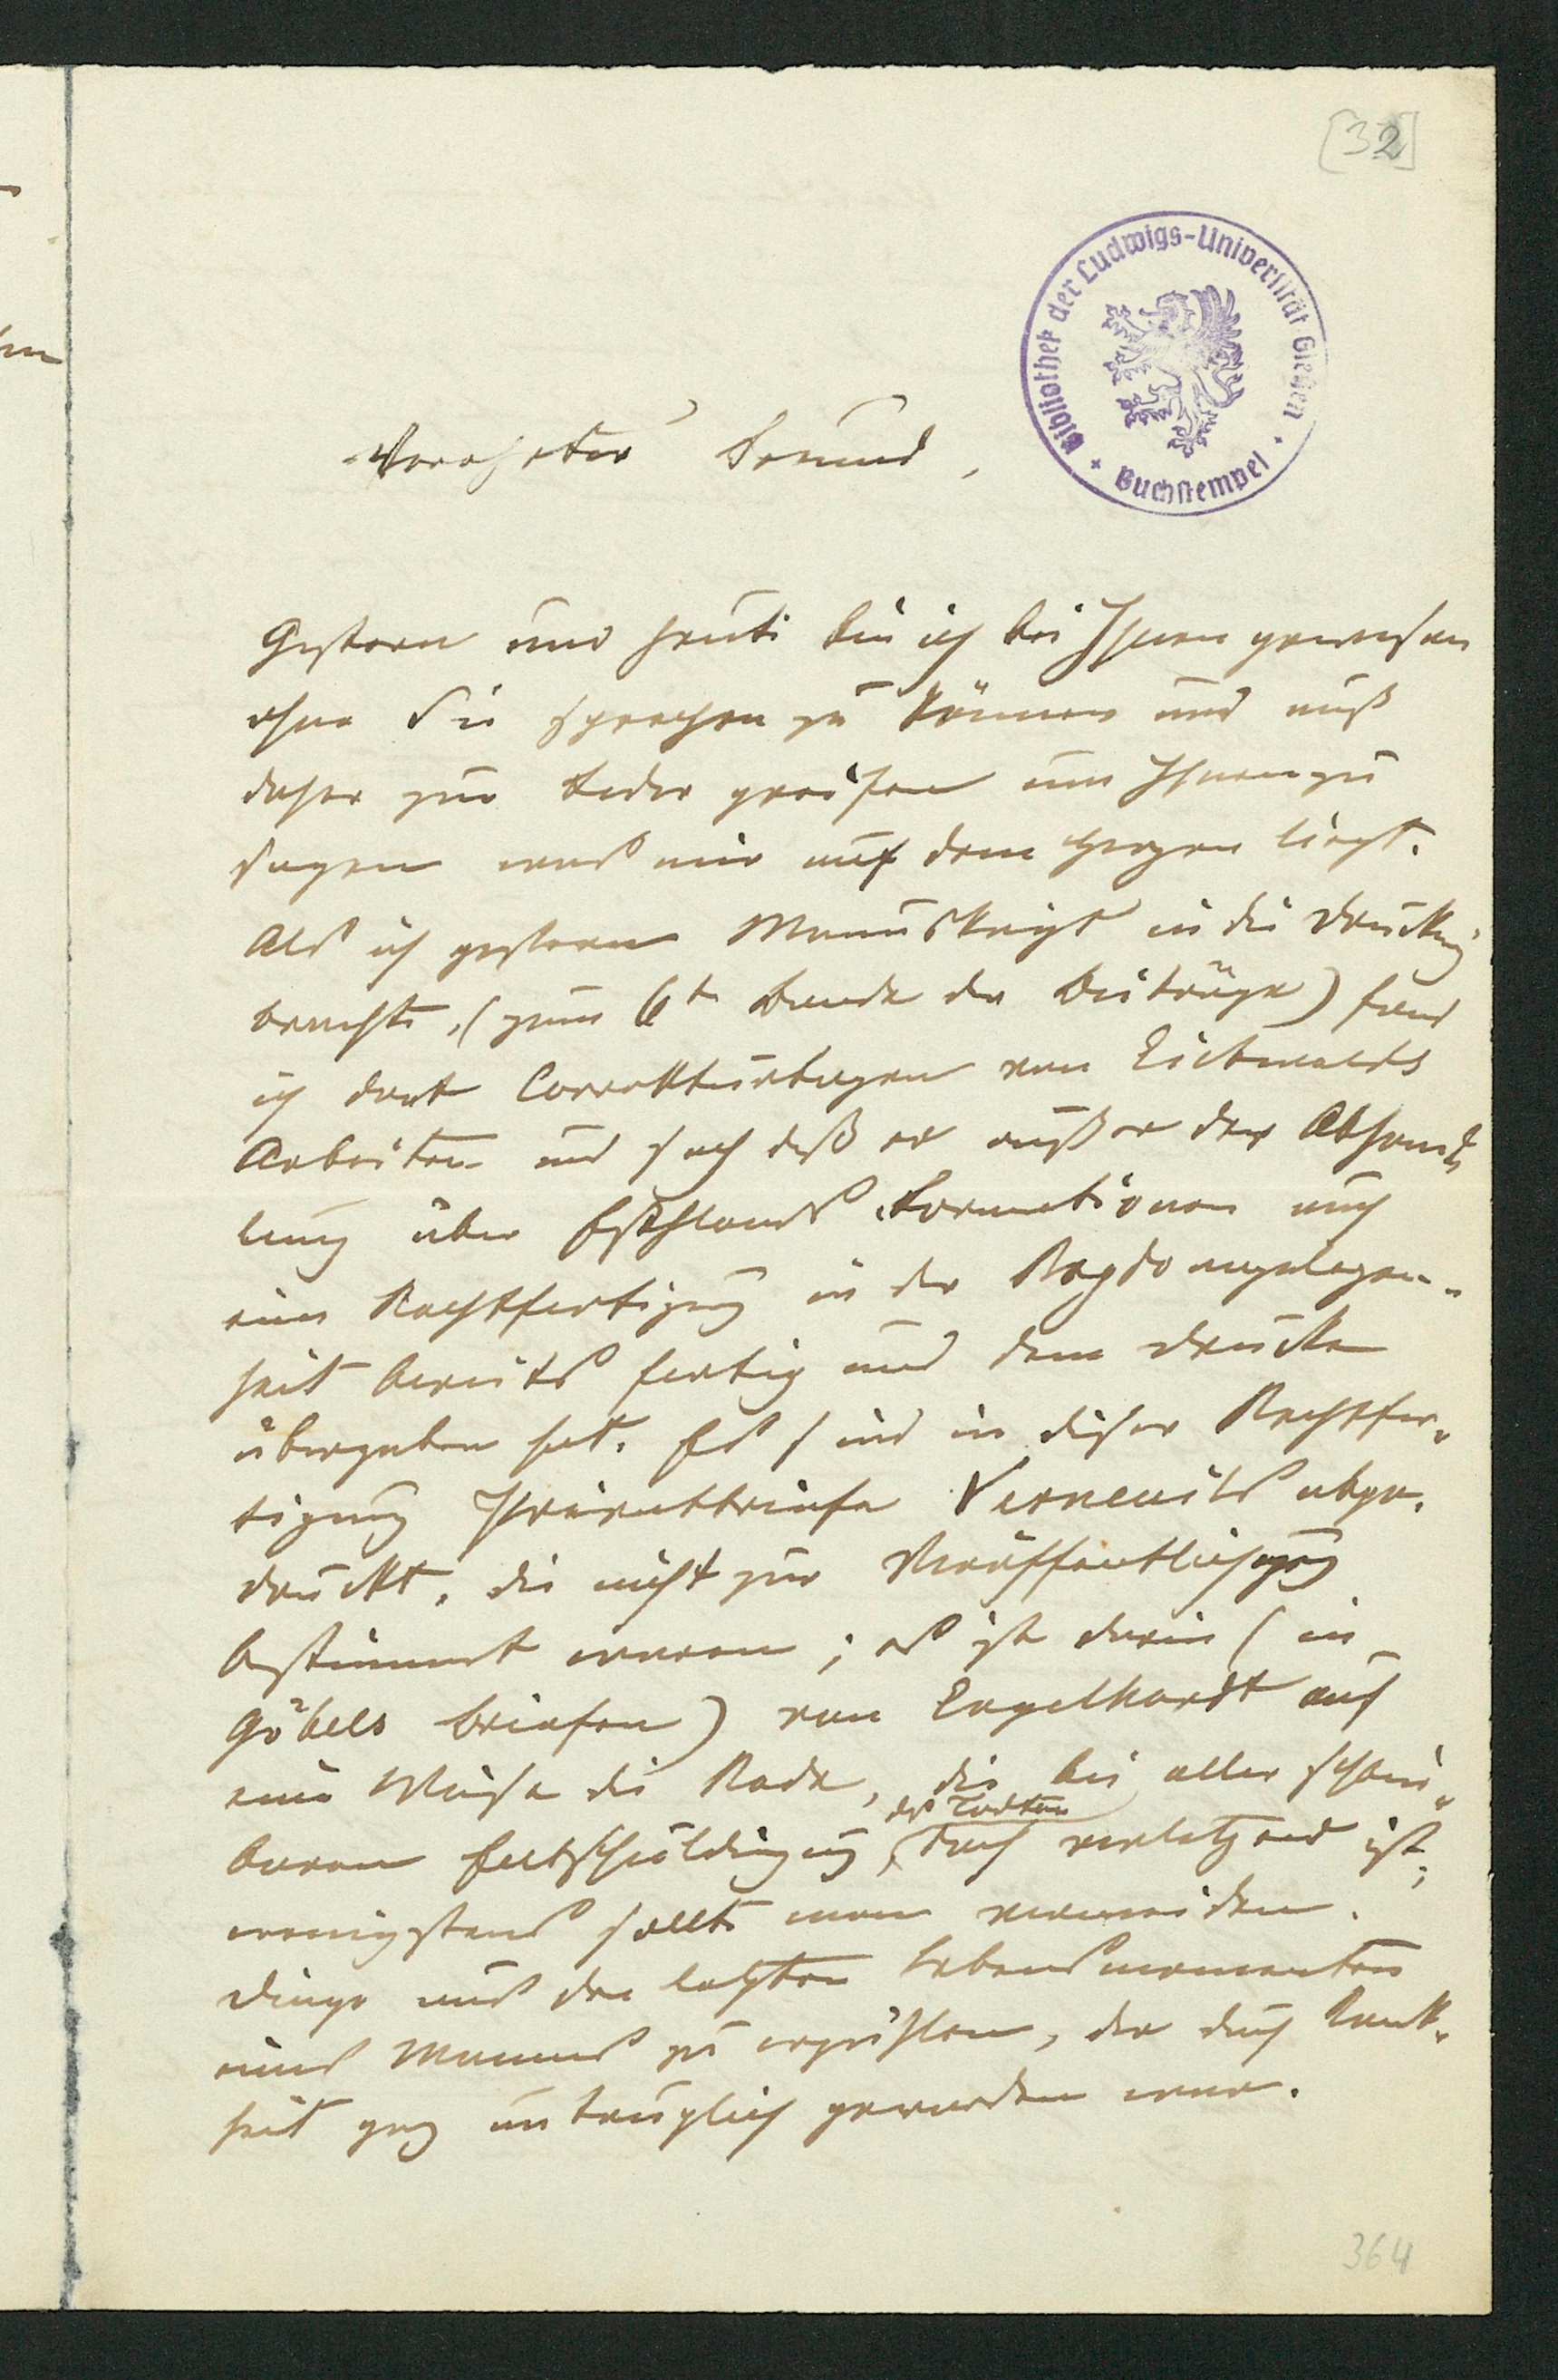 [32]
Bibliothek der Ludwigs-Universität Gießen
Buchstempel
Verehrter Freund,
Gestern und heute bin ich bei Ihnen gewesen
ohne Sie sprechen zu können und muß
daher zur Feder greifen um Ihnen zu
sagen was mir auf dem Herzen liegt.
Als ich gestern Manuskript in die Druckerei
brachte, (zum 6t Bande der Beiträge) fand
ich dort Correkturbogen von Eichwalds
Arbeiten und sah daß er außer der Abhand
lung über Esthlands Formationen auch
eine Rechtfertigung in der Bogdoangelegen-
heit bereits fertig und dem Drucke
übergeben hat. Es sind in dieser Rechtfer-
tigung Privatbriefe Verneuils abge-
druckt, die nicht zur Veröffentlichung
bestimmt waren; es ist darin (in
Göbels Briefen) von Engelhardt auf
eine Weise die Rede, die bei aller schein-
baren Entschuldigung des Todten doch verletzend ist;
wenigstens sollte man vermeiden
Dinge aus den letzten Lebensmomenten
eines Mannes zu erzählen, der durch Krank-
heit ganz untauglich geworden war.
364